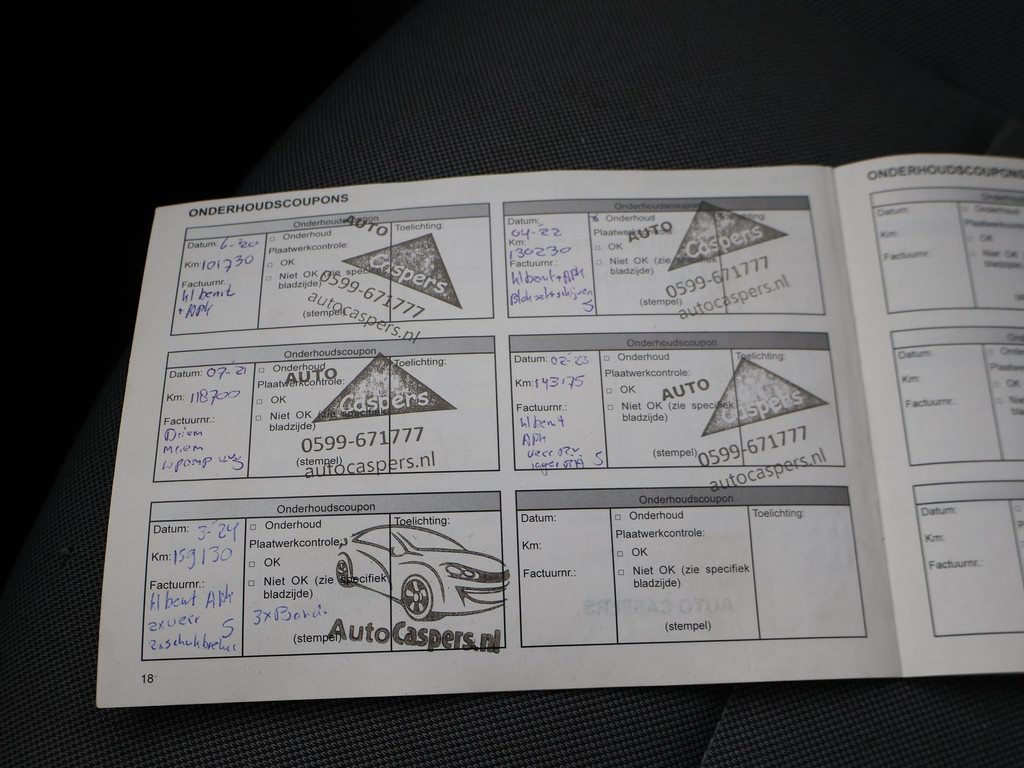 ONDERHOUDSCOUPONS
Onderhoudscoupon
Datum: 6-20
Km: 101730
Factuurnr.:
kl beurt
+ APk
□ Onderhoud
Plaatwerkcontrole:
□ OK
□ Niet OK (zie specifiek
bladzijde)
(stempel)
Toelichting:
AUTO
Caspers
0599-671777
autocaspers.nl
Onderhoudscoupon
Datum:
04-22
Km:
130230
Factuurnr.:
kl beurt + APk
Blokset + schijven
Onderhoud
Plaatwerkcontrole:
□ OK
□ Niet OK (zie specifiek
bladzijde)
(stempel)
Toelichting:
AUTO
Caspers
0599-671777
autocaspers.nl
Onderhoudscoupon
Datum: 07-21
Km: 118700
Factuurnr.:
Driem
mriem
wpomp
□ Onderhoud
Plaatwerkcontrole:
□ OK
□ Niet OK (zie specifiek
bladzijde)
(stempel)
Toelichting:
AUTO
Caspers
0599-671777
autocaspers.nl
Onderhoudscoupon
Datum: 02-23
Km: 143175
Factuurnr.:
kl beurt
APk
veer
lager
□ Onderhoud
Plaatwerkcontrole:
□ OK
□ Niet OK (zie specifiek
bladzijde)
(stempel)
Toelichting:
AUTO
Caspers
0599-671777
autocaspers.nl
Onderhoudscoupon
Datum: 3-24
Km: 159130
Factuurnr.:
kl beurt APk
2x veer
□ Onderhoud
Plaatwerkcontrole:
□ OK
□ Niet OK (zie specifiek
bladzijde)
3x Band.
(stempel)
Toelichting:
AutoCaspers.nl
Onderhoudscoupon
Datum:
Km:
Factuurnr.:
□ Onderhoud
Plaatwerkcontrole:
□ OK
□ Niet OK (zie specifiek
bladzijde)
(stempel)
Toelichting:
18
ONDERHOUDSCOUPONS
Datum:
Km:
Factuurnr.:
□ OK
Datum:
Km:
Factuurnr.:
Datum:
Km:
Factuurnr.: